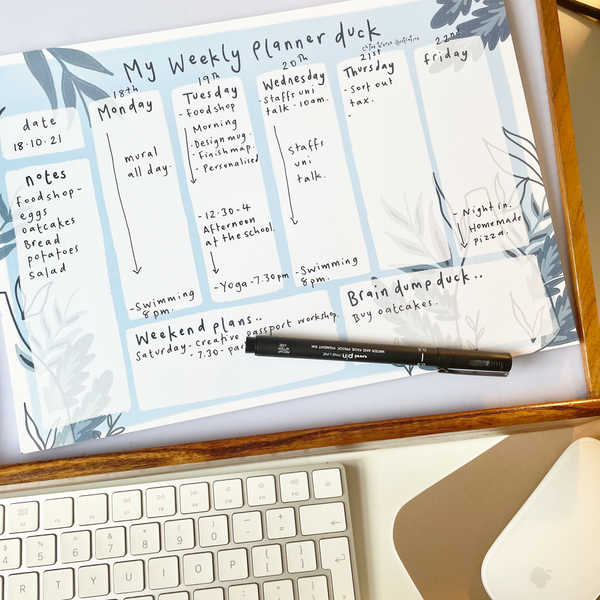 My Weekly planner duck
date
18.10.21
notes
Food shop -
eggs
oatcakes
Bread
potatoes
salad
18th
Monday
mural
all day.
- Swimming
8pm.
19th
Tuesday
- Food shop
Morning
- Design mug.
- Finish map.
- Personalised
- 12.30 - 4
Afternoon
at the school.
- Yoga - 7.30pm
20th
Wednesday
- Staffs uni
talk - 10am.
staffs
uni
talk.
- Swimming
8pm.
21st
Thursday
- Sort out
tax.
-
22nd
Friday
- Night in.
Homemade
pizza.
Weekend plans..
Saturday - creative passport workshop.
- 7.30 -
Brain dump duck..
Buy oatcakes.
uni pin FINE LINE
WATER AND FADE PROOF PIGMENT INK
0.5
F4
F5
F6
F7
F8
F9
F10
F11
F12
4
5
6
7
8
9
0
-
+
=
R
T
Y
U
I
O
P
{
[
}
]